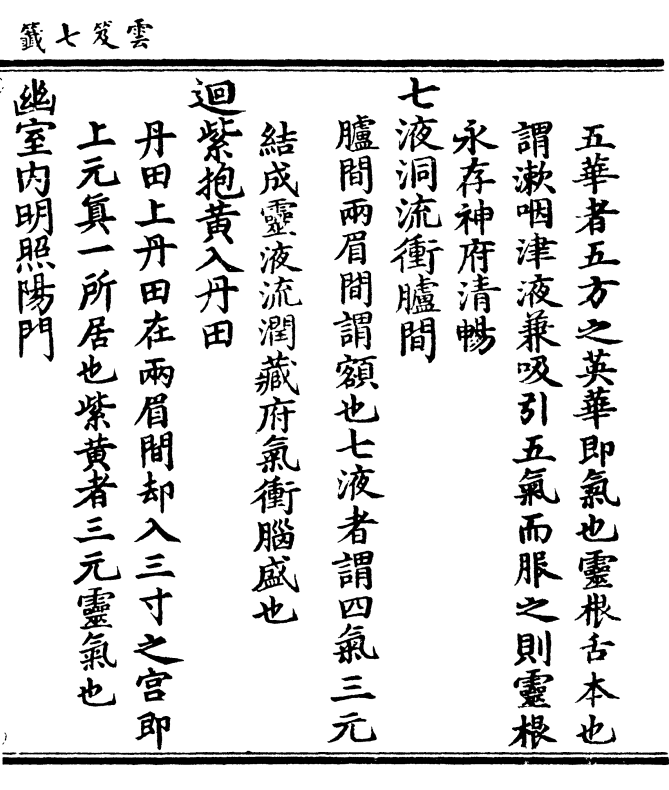 雲笈七籤
五華者五方之英華即氣也靈根舌本也
謂漱咽津液兼吸引五氣而服之則靈根
永存神府清暢
七液洞流衝臚間
臚間兩眉間謂額也七液者謂四氣三元
結成靈液流潤藏府氣衝腦盛也
迴紫抱黄入丹田
丹田上丹田在兩眉間却入三寸之宫即
上元真一所居也紫黄者三元靈氣也
幽室内明照陽門